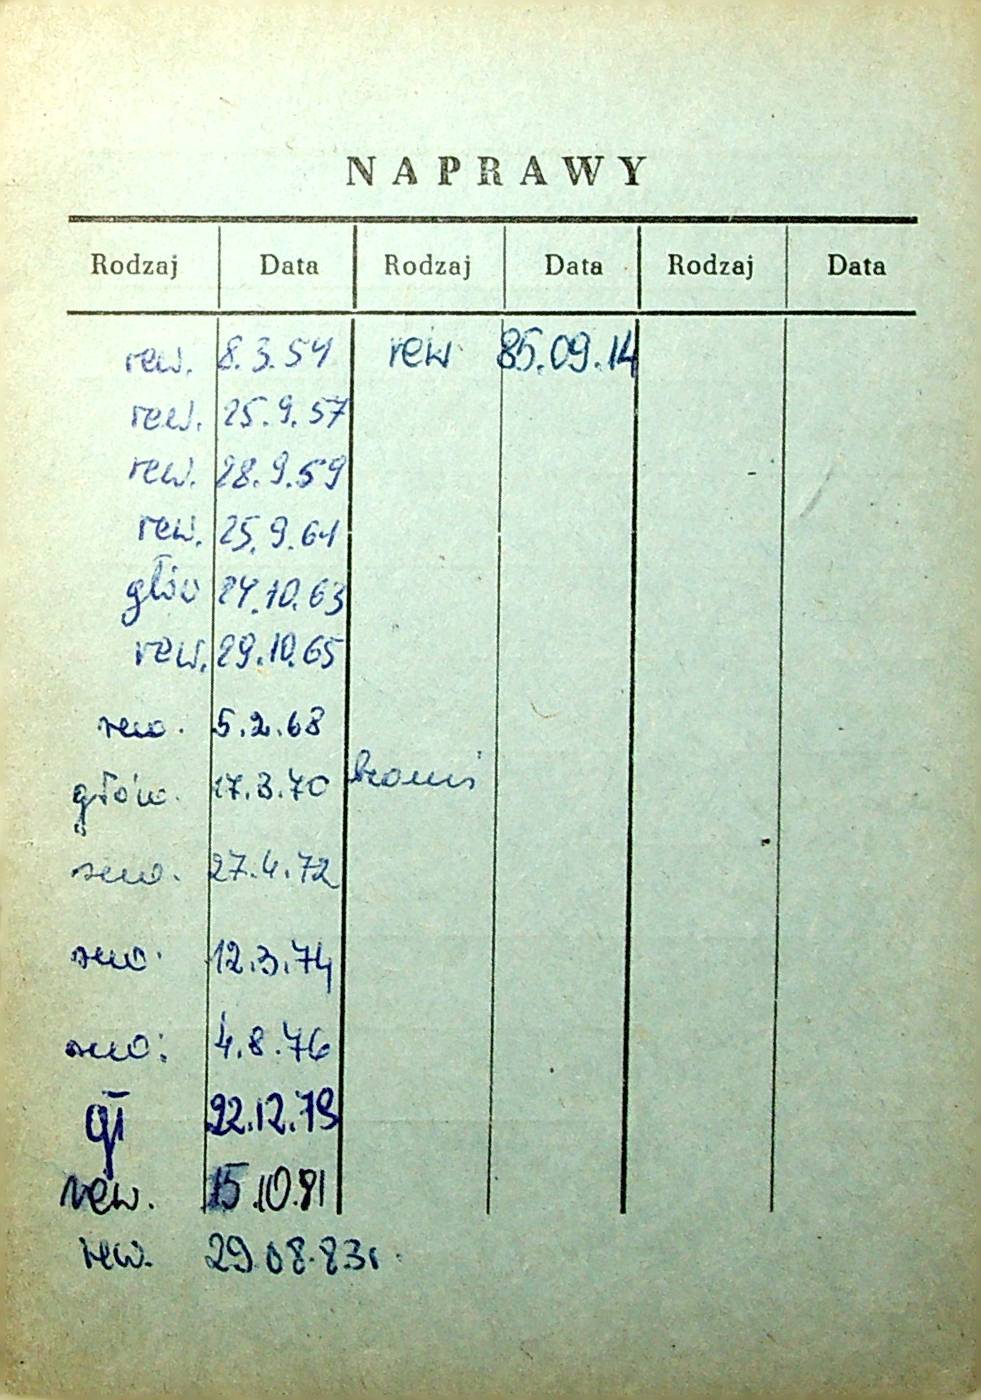 NAPRAWY
Rodzaj Data Rodzaj Data Rodzaj Data
rew. 8.3.54 rew 85.09.14
rew. 25.9.57
rew. 28.9.59
rew. 25.9.61
głów 24.10.63
rew. 29.10.65
rew. 5.2.68
głów. 17.3.70
rew. 27.4.72
rew. 12.3.74
rew. 4.8.76
gł 22.12.79
rew. 15.10.81
rew. 29.08.83r.